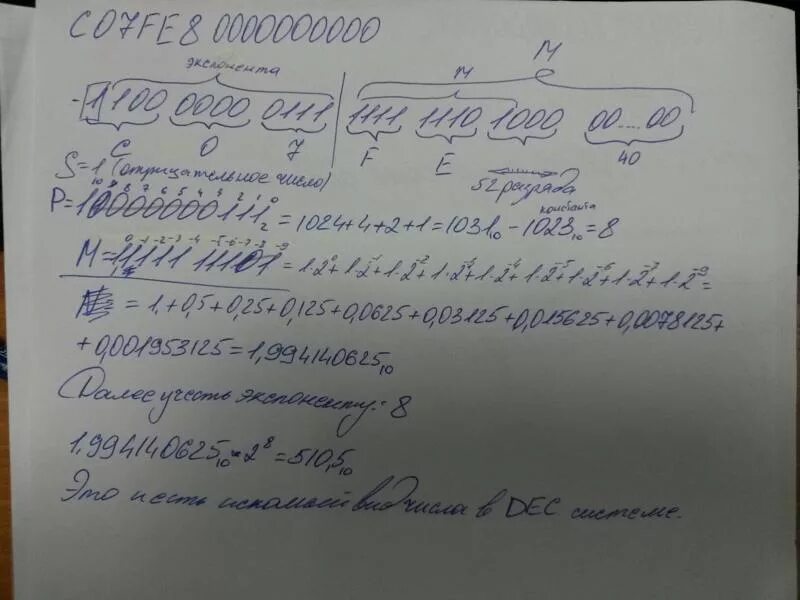 C07FE80000000000
экспонента M
M
1 100 0000 0111 1111 1110 1000 00....00
C 0 7 F E 40
S=1 (отрицательное число) 52 разряда
10 9 8 7 6 5 4 3 2 1 0 константа
P=10000000111₂ = 1024+4+2+1=1031₁₀ - 1023₁₀=8
0 -1 -2 -3 -4 -5 -6 -7 -8 -9
M=1,1111 11101 = 1·2⁰+1·2⁻¹+1·2⁻²+1·2⁻³+1·2⁻⁴+1·2⁻⁵+1·2⁻⁶+1·2⁻⁷+1·2⁻⁹=
= 1,+0,5+0,25+0,125+0,0625+0,03125+0,015625+0,0078125+
+0,001953125=1,994140625₁₀
Далее учесть экспоненту: 8
1,994140625₁₀·2⁸=510,5₁₀
Это и есть искомый вид числа в DEC системе.